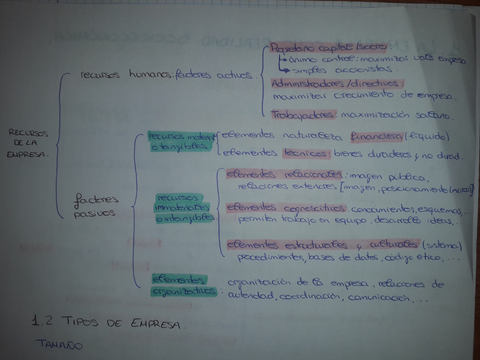 Propietario capital/socios
→ ánimo control: maximizar valor empresa
→ simples accionistas
recursos humanos. factores activos
Administradores/directivos:
maximizar crecimiento de empresa.
Trabajadores: maximización salario.
RECURSOS
DE LA
EMPRESA.
recursos materiales
o tangibles
elementos naturaleza financiera (líquidez)
elementos técnicos: bienes duraderos y no durad.
factores
pasivos
recursos
inmateriales
o intangibles
elementos relacionales: imagen pública,
relaciones exteriores [imagen, posicionamiento
elementos cognoscitivos: conocimientos, esquemas,
permiten trabajo en equipo, desarrollo ideas,...
elementos estructurales y culturales (sistema)
procedimientos, bases de datos, código ético,...
elementos
organizativos:
organización de la empresa, relaciones de
autoridad, coordinación, comunicación,...
1.2 TIPOS DE EMPRESA.
TAMAÑO